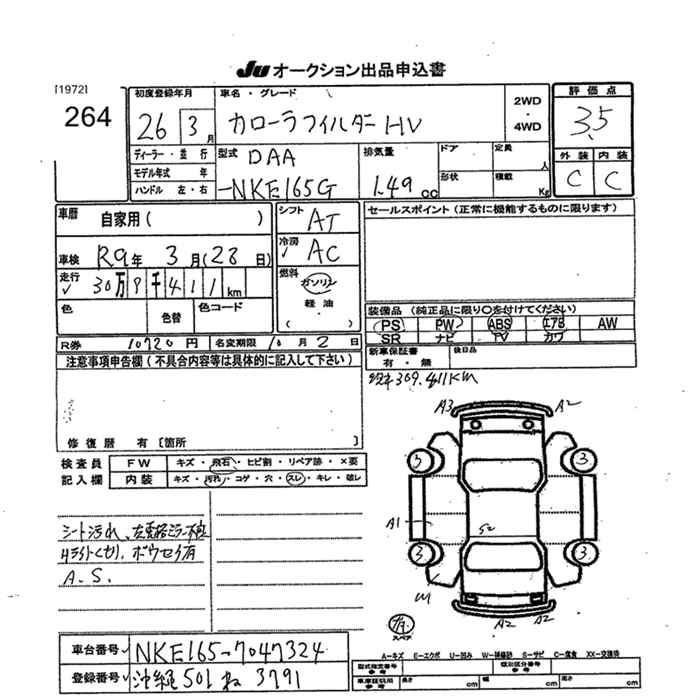 JU オークション出品申込書
[1972]
264
初度登録年月
26 3月
車名・グレード
カローラフィルダーHV
2WD
・
4WD
評価点
3.5
ディーラー・並行
モデル年式 年
ハンドル 左・右
型式
DAA
-NKE165G
排気量
1.49 cc
ドア
形状
定員
人
積載
Kg
外装 内装
C C
車歴 自家用( )
シフト AT
セールスポイント(正常に機能するものに限ります)
車検 R9年 3月(28日)
冷房 AC
走行 30万9千411km
燃料
ガソリン
軽油
( )
色
色替
色コード
装備品(純正品に限り○を付けてください)
PS PW ABS エアB AW
SR ナビ TV カワ
R券 10720円
名変期限 10月2日
新車保証書
有・無
後日品
注意事項申告欄(不具合内容等は具体的に記入して下さい)
309.411KM
修復歴 有[箇所 ]
検査員
記入欄
FW キズ・飛石・ヒビ割・リペア跡・×要
内装 キズ・汚れ・コゲ・穴・スレ・キレ・破レ
シート汚れ、
ボウセイ有
A.S.
A3 A2
3 3
A1 S2
3 3
W
A2 A2
スペア
A=キズ E=エクボ U=凹み W=補修跡 S=サビ C=腐食 XX=交換済
車台番号 NKE165-7047324
登録番号 沖縄 501 ね 3791
型式指定番号
参考
類別区分番号
参考
車庫証明用
参考
長さ cm
幅 cm
高さ cm